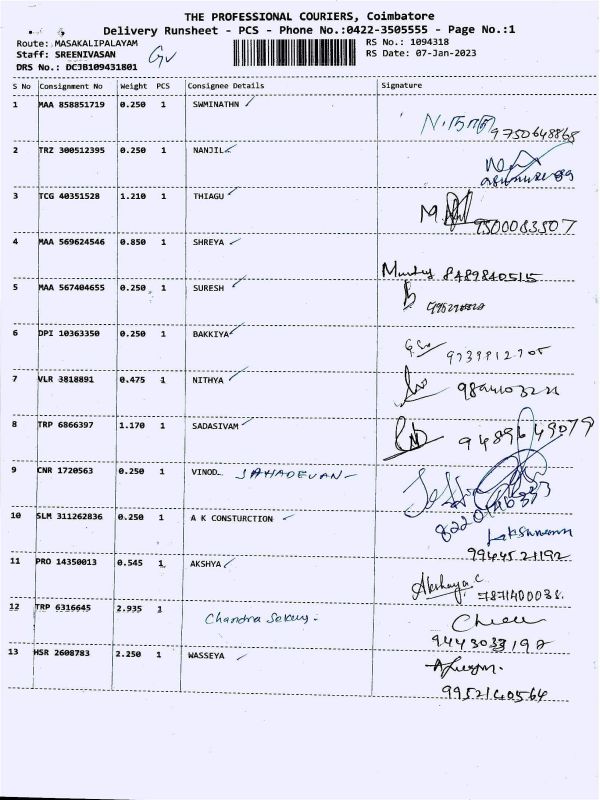 THE PROFESSIONAL COURIERS, Coimbatore
Delivery Runsheet - PCS - Phone No.:0422-3505555 - Page No.:1
Route: MASAKALIPALAYAM RS No.: 1094318
Staff: SREENIVASAN RS Date: 07-Jan-2023
DRS No.: DCJB109431801
S No Consignment No Weight PCS Consignee Details Signature
1 MAA 858851719 0.250 1 SWMINATHN
9750648868
2 TRZ 300512395 0.250 1 NANJIL
3 TCG 40351528 1.210 1 THIAGU
9500083507
4 MAA 569624546 0.850 1 SHREYA
8489840515
5 MAA 567404655 0.250 1 SURESH
6 DPI 10363350 0.250 1 BAKKIYA
7 VLR 3818891 0.475 1 NITHYA
8 TRP 6866397 1.170 1 SADASIVAM
9489649079
9 CNR 1720563 0.250 1 VINOD SAHADEVAN
10 SLM 311262836 0.250 1 A K CONSTURCTION
Lakshmanan
9944521192
11 PRO 14350013 0.545 1 AKSHYA
Akshaya.C 7871400038.
12 TRP 6316645 2.935 1 Chandra Sekar.
9443033192
13 HSR 2608783 2.250 1 WASSEYA
9952140564